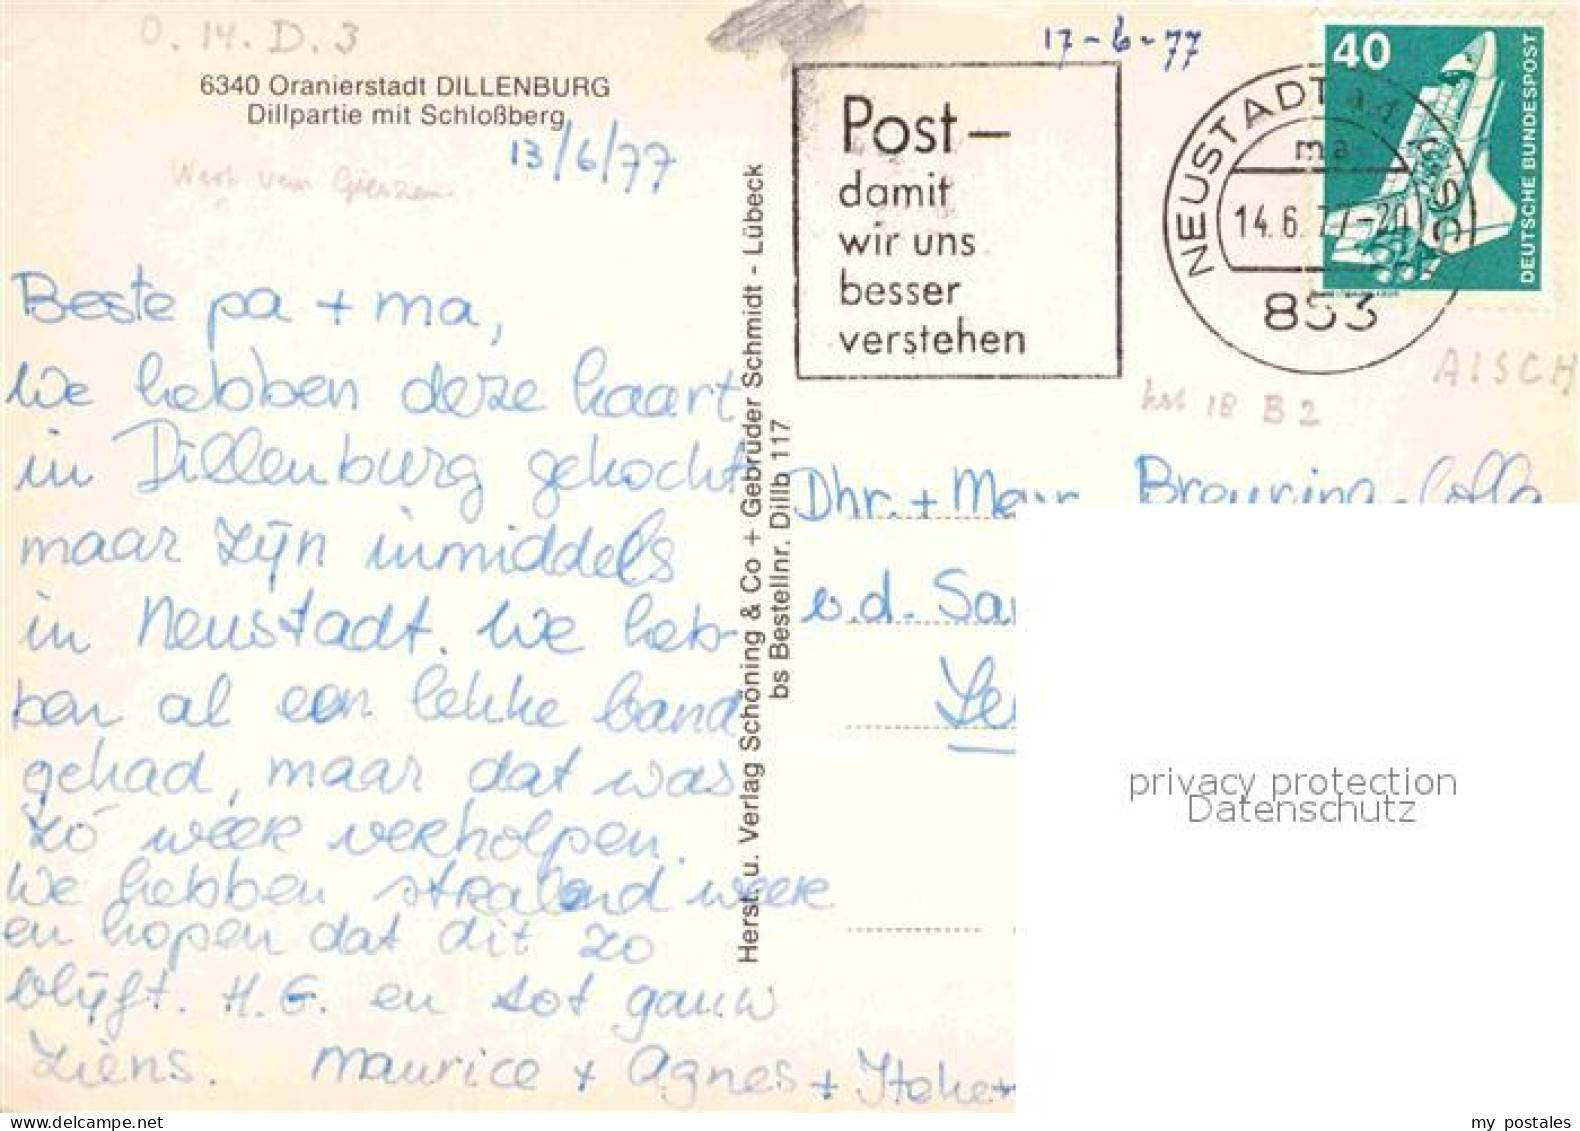 O. 14. D. 3
6340 Oranierstadt DILLENBURG
Dillpartie mit Schloßberg
13/6/77
17-6-77
Post-
damit
wir uns
besser
verstehen
NEUSTADT a.d. AISCH
ma
14.6.77-20
853
40
DEUTSCHE BUNDESPOST
AISCH
18 B 2
Beste pa + ma,
We hebben deze kaart
in Dillenburg gekocht
maar zijn inmiddels
in Neustadt. We heb-
ben al een lekke band
gehad, maar dat was
zó weer verholpen.
We hebben stralend weer
en hopen dat dit zo
blijft. H.G. en tot gauw
ziens. Maurice + Agnes +
Herst. u. Verlag Schöning & Co + Gebrüder Schmidt - Lübeck
bs Bestellnr. Dillb 117
Dhr. + Mevr. Breuring-
v.d. Sa
privacy protection
Datenschutz
my postales